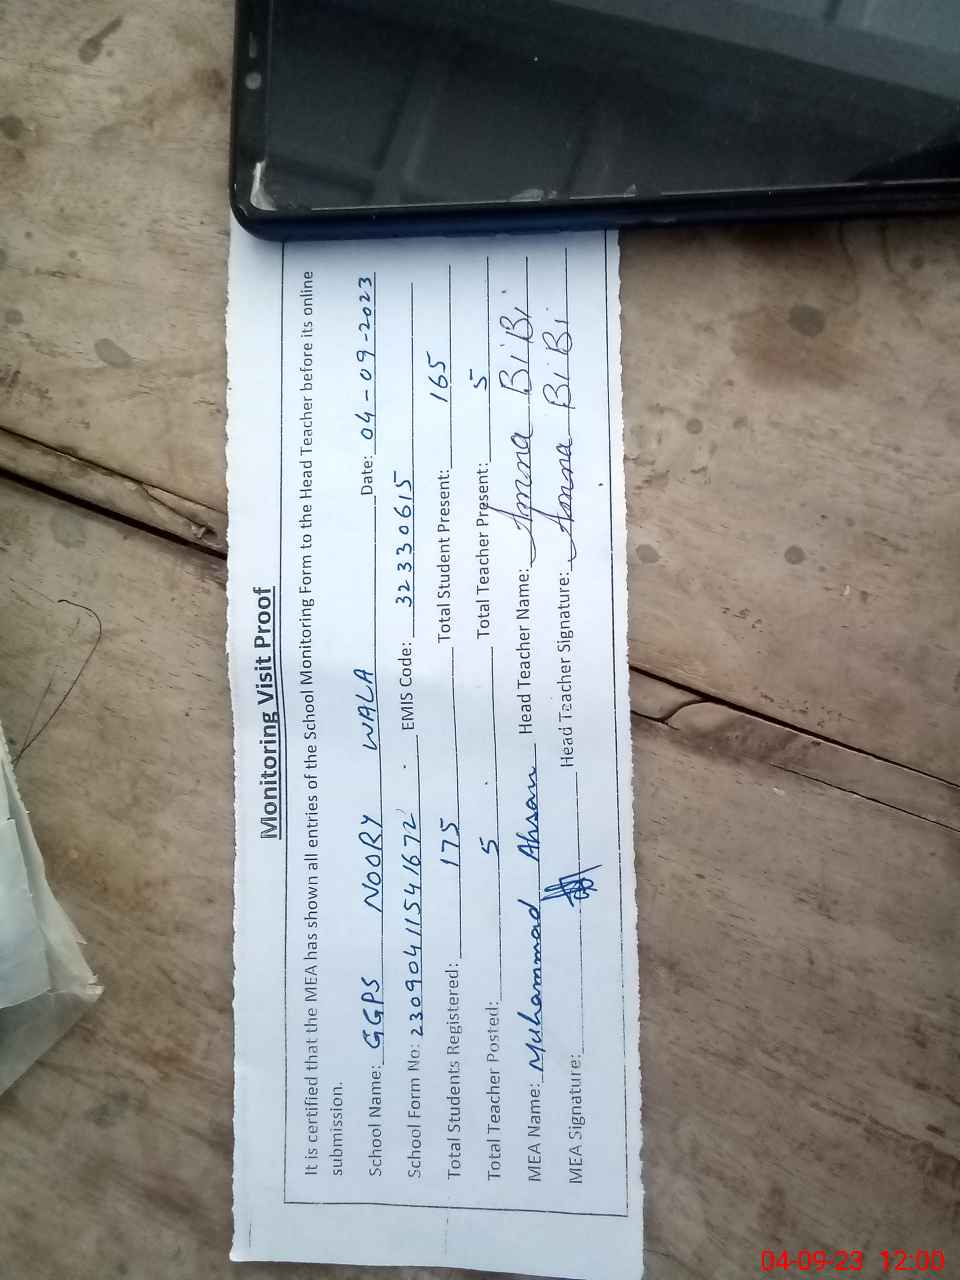 Monitoring Visit Proof
It is certified that the MEA has shown all entries of the School Monitoring Form to the Head Teacher before its online
submission.
School Name: GGPS NOORY WALA Date: 04-09-2023
School Form No: 23090411541672 EMIS Code: 32330615
Total Students Registered: 175 Total Student Present: 165
Total Teacher Posted: 5 Total Teacher Present: 5
MEA Name: Muhammad Ahsan Head Teacher Name: Amna BiBi
MEA Signature: Head Teacher Signature: Amna BiBi
04-09-23 12:00